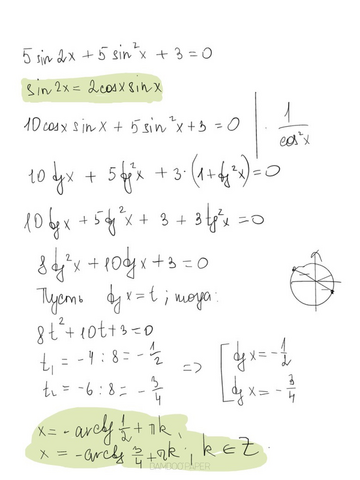 5 sin 2x + 5 sin²x + 3 = 0
sin 2x = 2cosx sinx
10cosx sinx + 5 sin²x + 3 = 0 | · 1/cos²x
10 tgx + 5 tg²x + 3·(1+tg²x) = 0
10 tgx + 5 tg²x + 3 + 3tg²x = 0
8 tg²x + 10tgx + 3 = 0
Пусть tgx = t ; тогда:
8t² + 10t + 3 = 0
t₁ = -4 : 8 = -1/2 => [ tgx = -1/2
t₂ = -6 : 8 = -3/4 tgx = -3/4
x = -arctg 1/2 + πk ,
x = -arctg 3/4 + πk ; k ∈ Z .